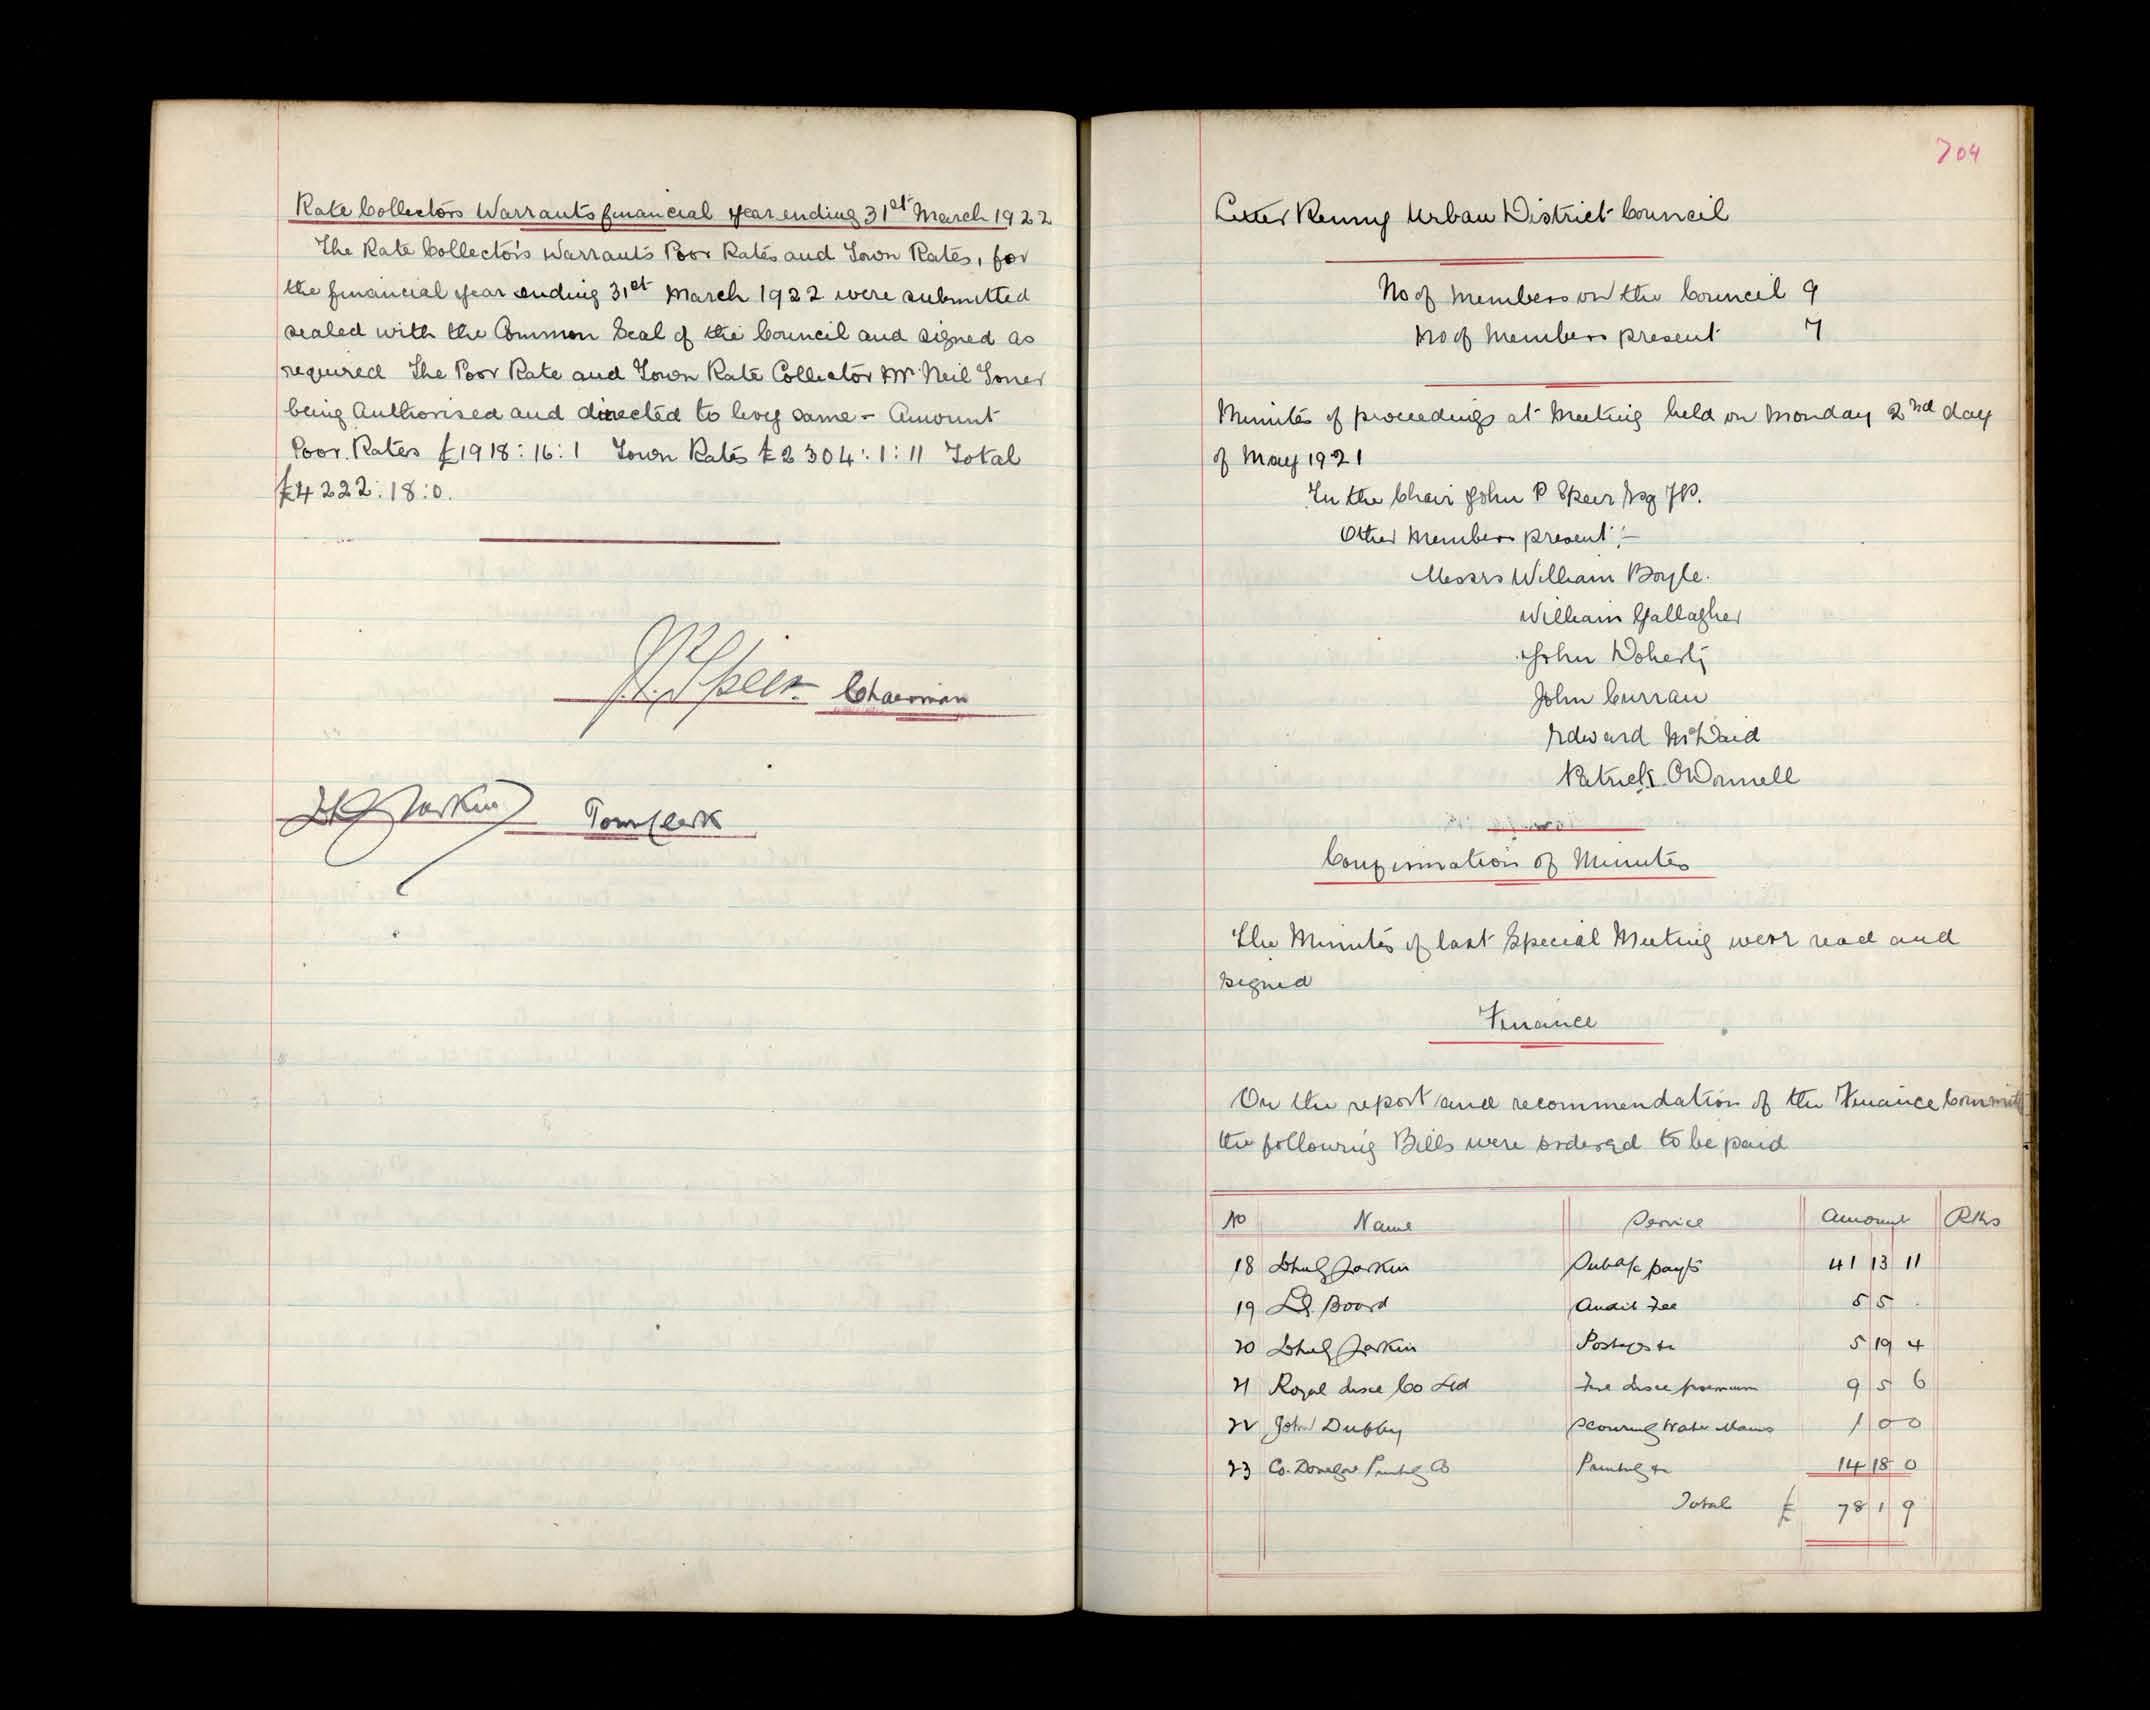 Rate Collectors Warrants financial year ending 31st March 1922
The Rate Collector's Warrants Poor Rates and Town Rates, for
the financial year ending 31st March 1922 were submitted
sealed with the Common Seal of the Council and signed as
required The Poor Rate and Town Rate Collector Mr Neil Toner
being Authorised and directed to levy same - Amount
Poor Rates £1918:16:1 Town Rates £2304:1:11 Total
£4222:18:0.
Speer Chairman
Larkin Town Clerk
704
Letter Kenny Urban District Council
No of Members on the Council 9
No of Members present 7
Minutes of proceedings at Meeting held on Monday 2nd day
of May 1921
In the Chair John P Speer Esq JP.
Other Members present:-
Messrs William Boyle.
William Gallagher
John Doherty
John Curran
Edward McDaid
Patrick O'Donnell
Confirmation of Minutes
The Minutes of last Special Meeting were read and
signed
Finance
On the report and recommendation of the Finance Committ
the following Bills were ordered to be paid
No Name Service Amount Rks
18 Larkin Sub a/c payts 41 13 11
19 LG. Board Audit Fee 5 5 .
20 Larkin Postage &c 5 19 4
21 Royal Insce Co Ltd Fire Insce premium 9 5 6
22 John Duffy Scouring Water Mains 1 0 0
23 Co. Donegal Printg Co Printing &c 14 18 0
Total £ 78 1 9